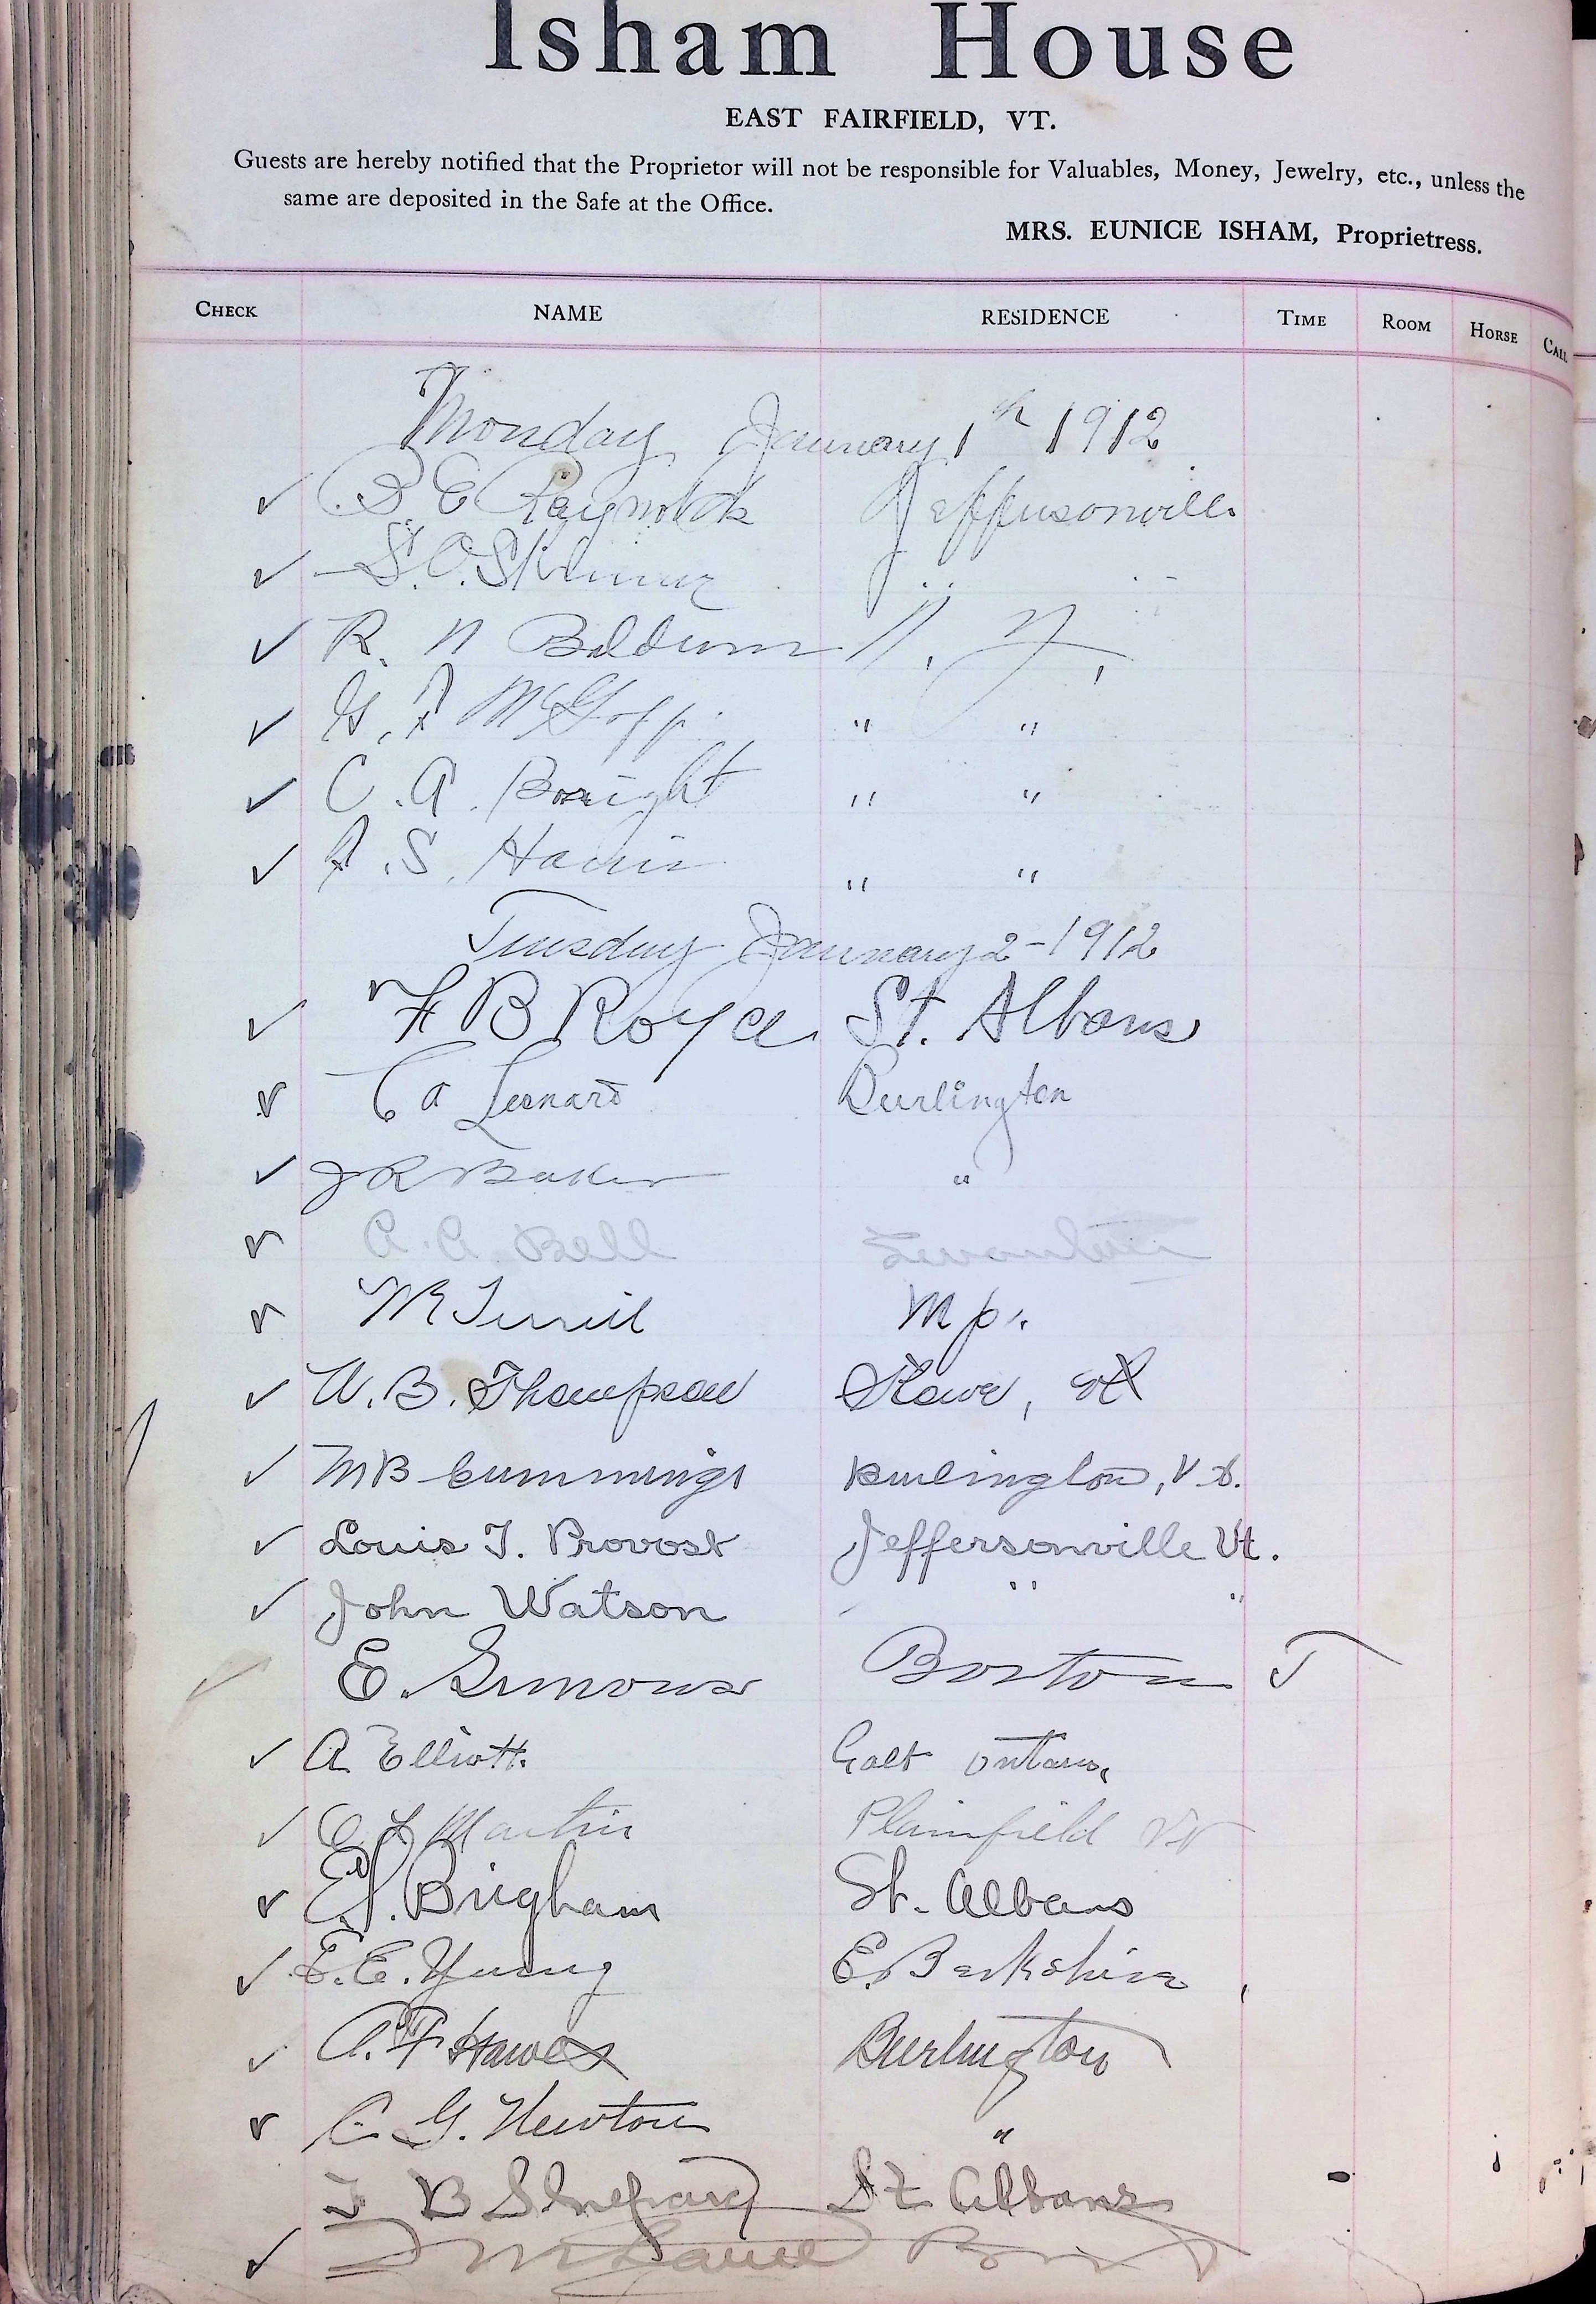 Isham House
EAST FAIRFIELD, VT.
Guests are hereby notified that the Proprietor will not be responsible for Valuables, Money, Jewelry, etc., unless the
same are deposited in the Safe at the Office.
MRS. EUNICE ISHAM, Proprietress.
CHECK NAME RESIDENCE TIME ROOM HORSE CALL
Monday January 1th 1912
✓ E Reynolds Jeffersonville
✓ S. O. Skinner " "
✓ R. N Baldwin N. Y.
✓ G. A McGoff " "
✓ C. A. Boright " "
✓ A. S. Harris " "
Tuesday January 2-1912
✓ F B Royce St. Albans
✓ C A Leonard Burlington
✓ J R Baker "
✓ A. A. Bell
✓ Terrill Mpr.
✓ W. B. Thompson Stowe, Vt
✓ M B Cummings Burlington, Vt.
✓ Louis T. Provost Jeffersonville Vt.
✓ John Watson " "
✓ E. Simons Boston T
✓ A Elliott. Galt Ontario,
✓ C L Martin Plainfield Vt
✓ E. S. Brigham St. Albans
✓ F. E. Young E. Berkshire,
✓ A. F. Hawes Burlington
✓ C. G. Newton "
B Shepard St Albans
✓